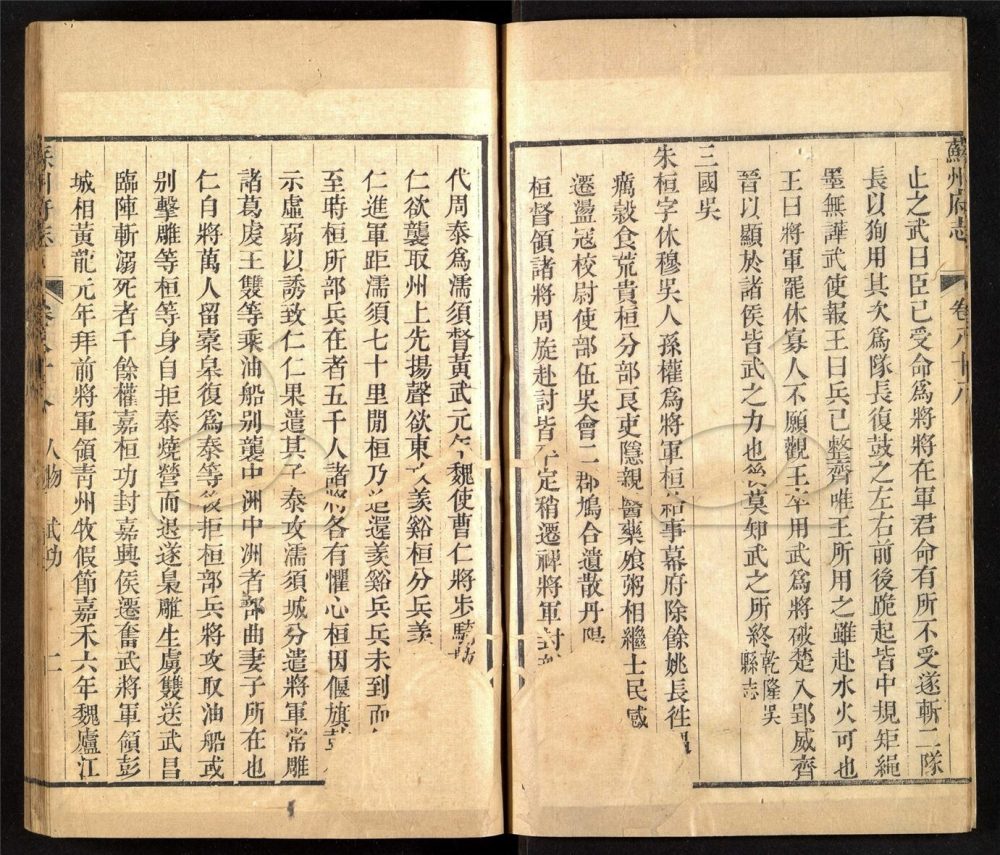 蘇州府志 卷六十六
止之武曰臣已受命爲將將在軍君命有所不受遂斬二隊
長以狥用其次爲隊長復鼓之左右前後跪起皆中規矩繩
墨無譁武使報王曰兵已整齊唯王所用之雖赴水火可也
王曰將軍罷休寡人不願觀王卒用武爲將破楚入郢威齊
晉以顯於諸侯皆武之力也後莫知武之所終乾隆吳縣志
三國吳
朱桓字休穆吳人孫權爲將軍桓給事幕府除餘姚長往
癘穀食荒貴桓分部良吏隱親醫藥飱粥相繼士民感
遷盪冦校尉使部伍吳會二郡鳩合遺散丹陽
桓督領諸將周旋赴討皆平定稍遷裨將軍封
代周泰爲濡須督黃武元年魏使曹仁將步騎
仁欲襲取州上先揚聲欲東攻羨谿桓分兵羨
仁進軍距濡須七十里閒桓乃追還羨谿兵兵未到而
至時桓所部兵在者五千人諸將各有懼心桓因偃旗
示虛弱以誘致仁仁果遣其子泰攻濡須城分遣將軍常雕
諸葛虔王雙等乘油船别襲中洲中洲者部曲妻子所在也
仁自將萬人留橐臯復爲泰等後拒桓部兵將攻取油船或
别擊雕等桓等身自拒泰燒營而退遂梟雕生虜雙送武昌
臨陣斬溺死者千餘權嘉桓功封嘉興侯遷奮武將軍領彭
城相黃龍元年拜前將軍領靑州牧假節嘉禾六年魏廬江
人物 武功 二